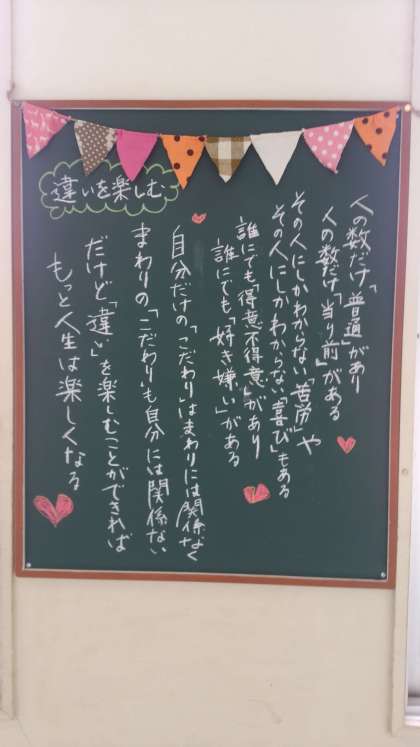 違いを楽しむ
人の数だけ「普通」があり
人の数だけ「当り前」がある
その人にしかわからない「苦労」や
その人にしかわからない「喜び」もある
誰にでも「得意不得意」があり
誰にでも「好き嫌い」がある
自分だけの「こだわり」はまわりには関係なく
まわりの「こだわり」も自分には関係ない
だけど「違い」を楽しむことができれば
もっと人生は楽しくなる